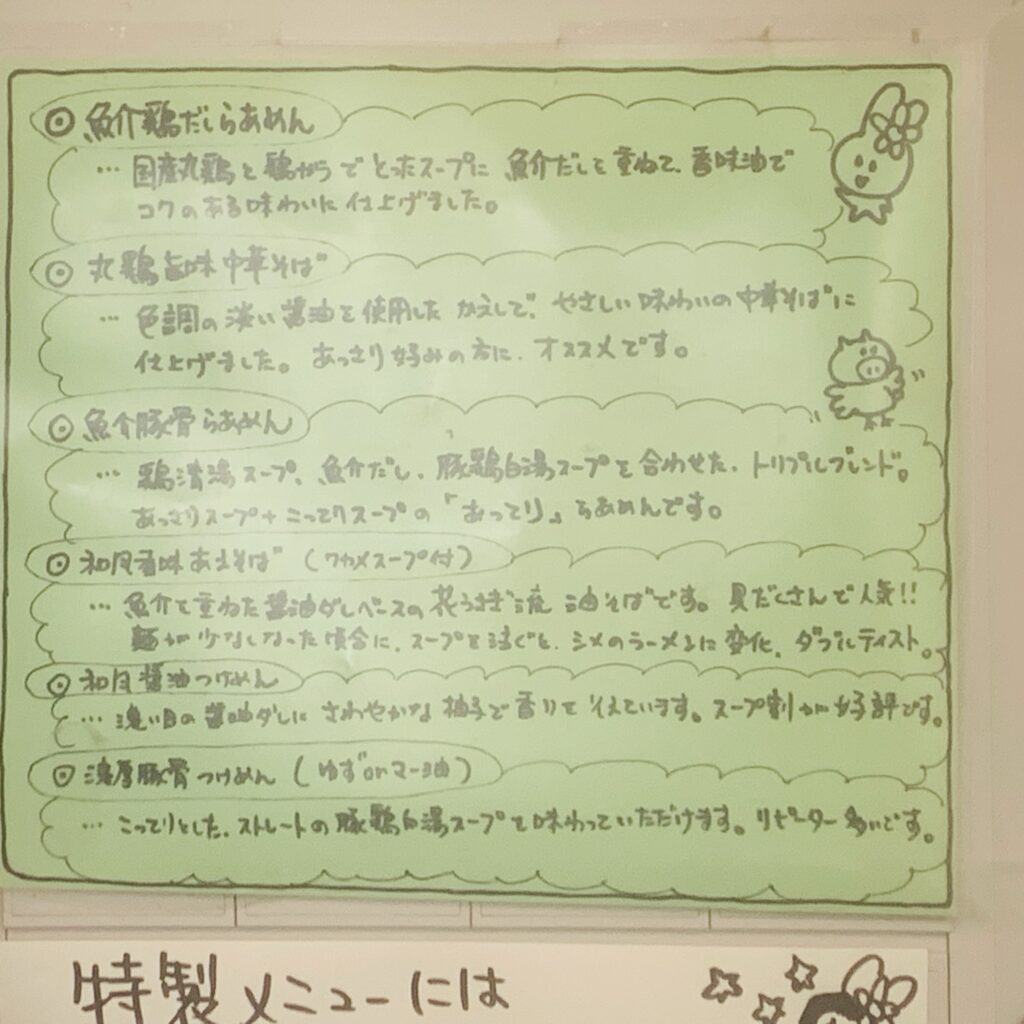 ◎ 魚介鶏だしらあめん
… 国産丸鶏と鶏がらでとったスープに 魚介だしを重ねて、香味油で
コクのある味わいに仕上げました。
◎ 丸鶏旨味中華そば
… 色調の淡い醤油を使用した かえしで、やさしい味わいの中華そばに
仕上げました。あっさり好みの方に、オススメです。
◎ 魚介豚骨らあめん
… 鶏清湯スープ、魚介だし、豚鶏白湯スープを合わせた、トリプルブレンド。
あっさりスープ+こってりスープの「あってり」らあめんです。
◎ 和風香味あえそば（ワカメスープ付）
… 魚介を重ねた醤油ダレベースの花うさぎ流 油そばです。具だくさんで人気!!
麺が少なくなった頃合に、スープを注ぐと、シメのラーメンに変化、ダブルテイスト。
◎ 和風醤油つけめん
… 濃い目の醤油ダレに さわやかな柚子で香りをそえています。スープ割が好評です。
◎ 濃厚豚骨つけめん（ゆずorマー油）
… こってりとした、ストレートの豚鶏白湯スープを味わっていただけます。リピーター多いです。
特製メニューには